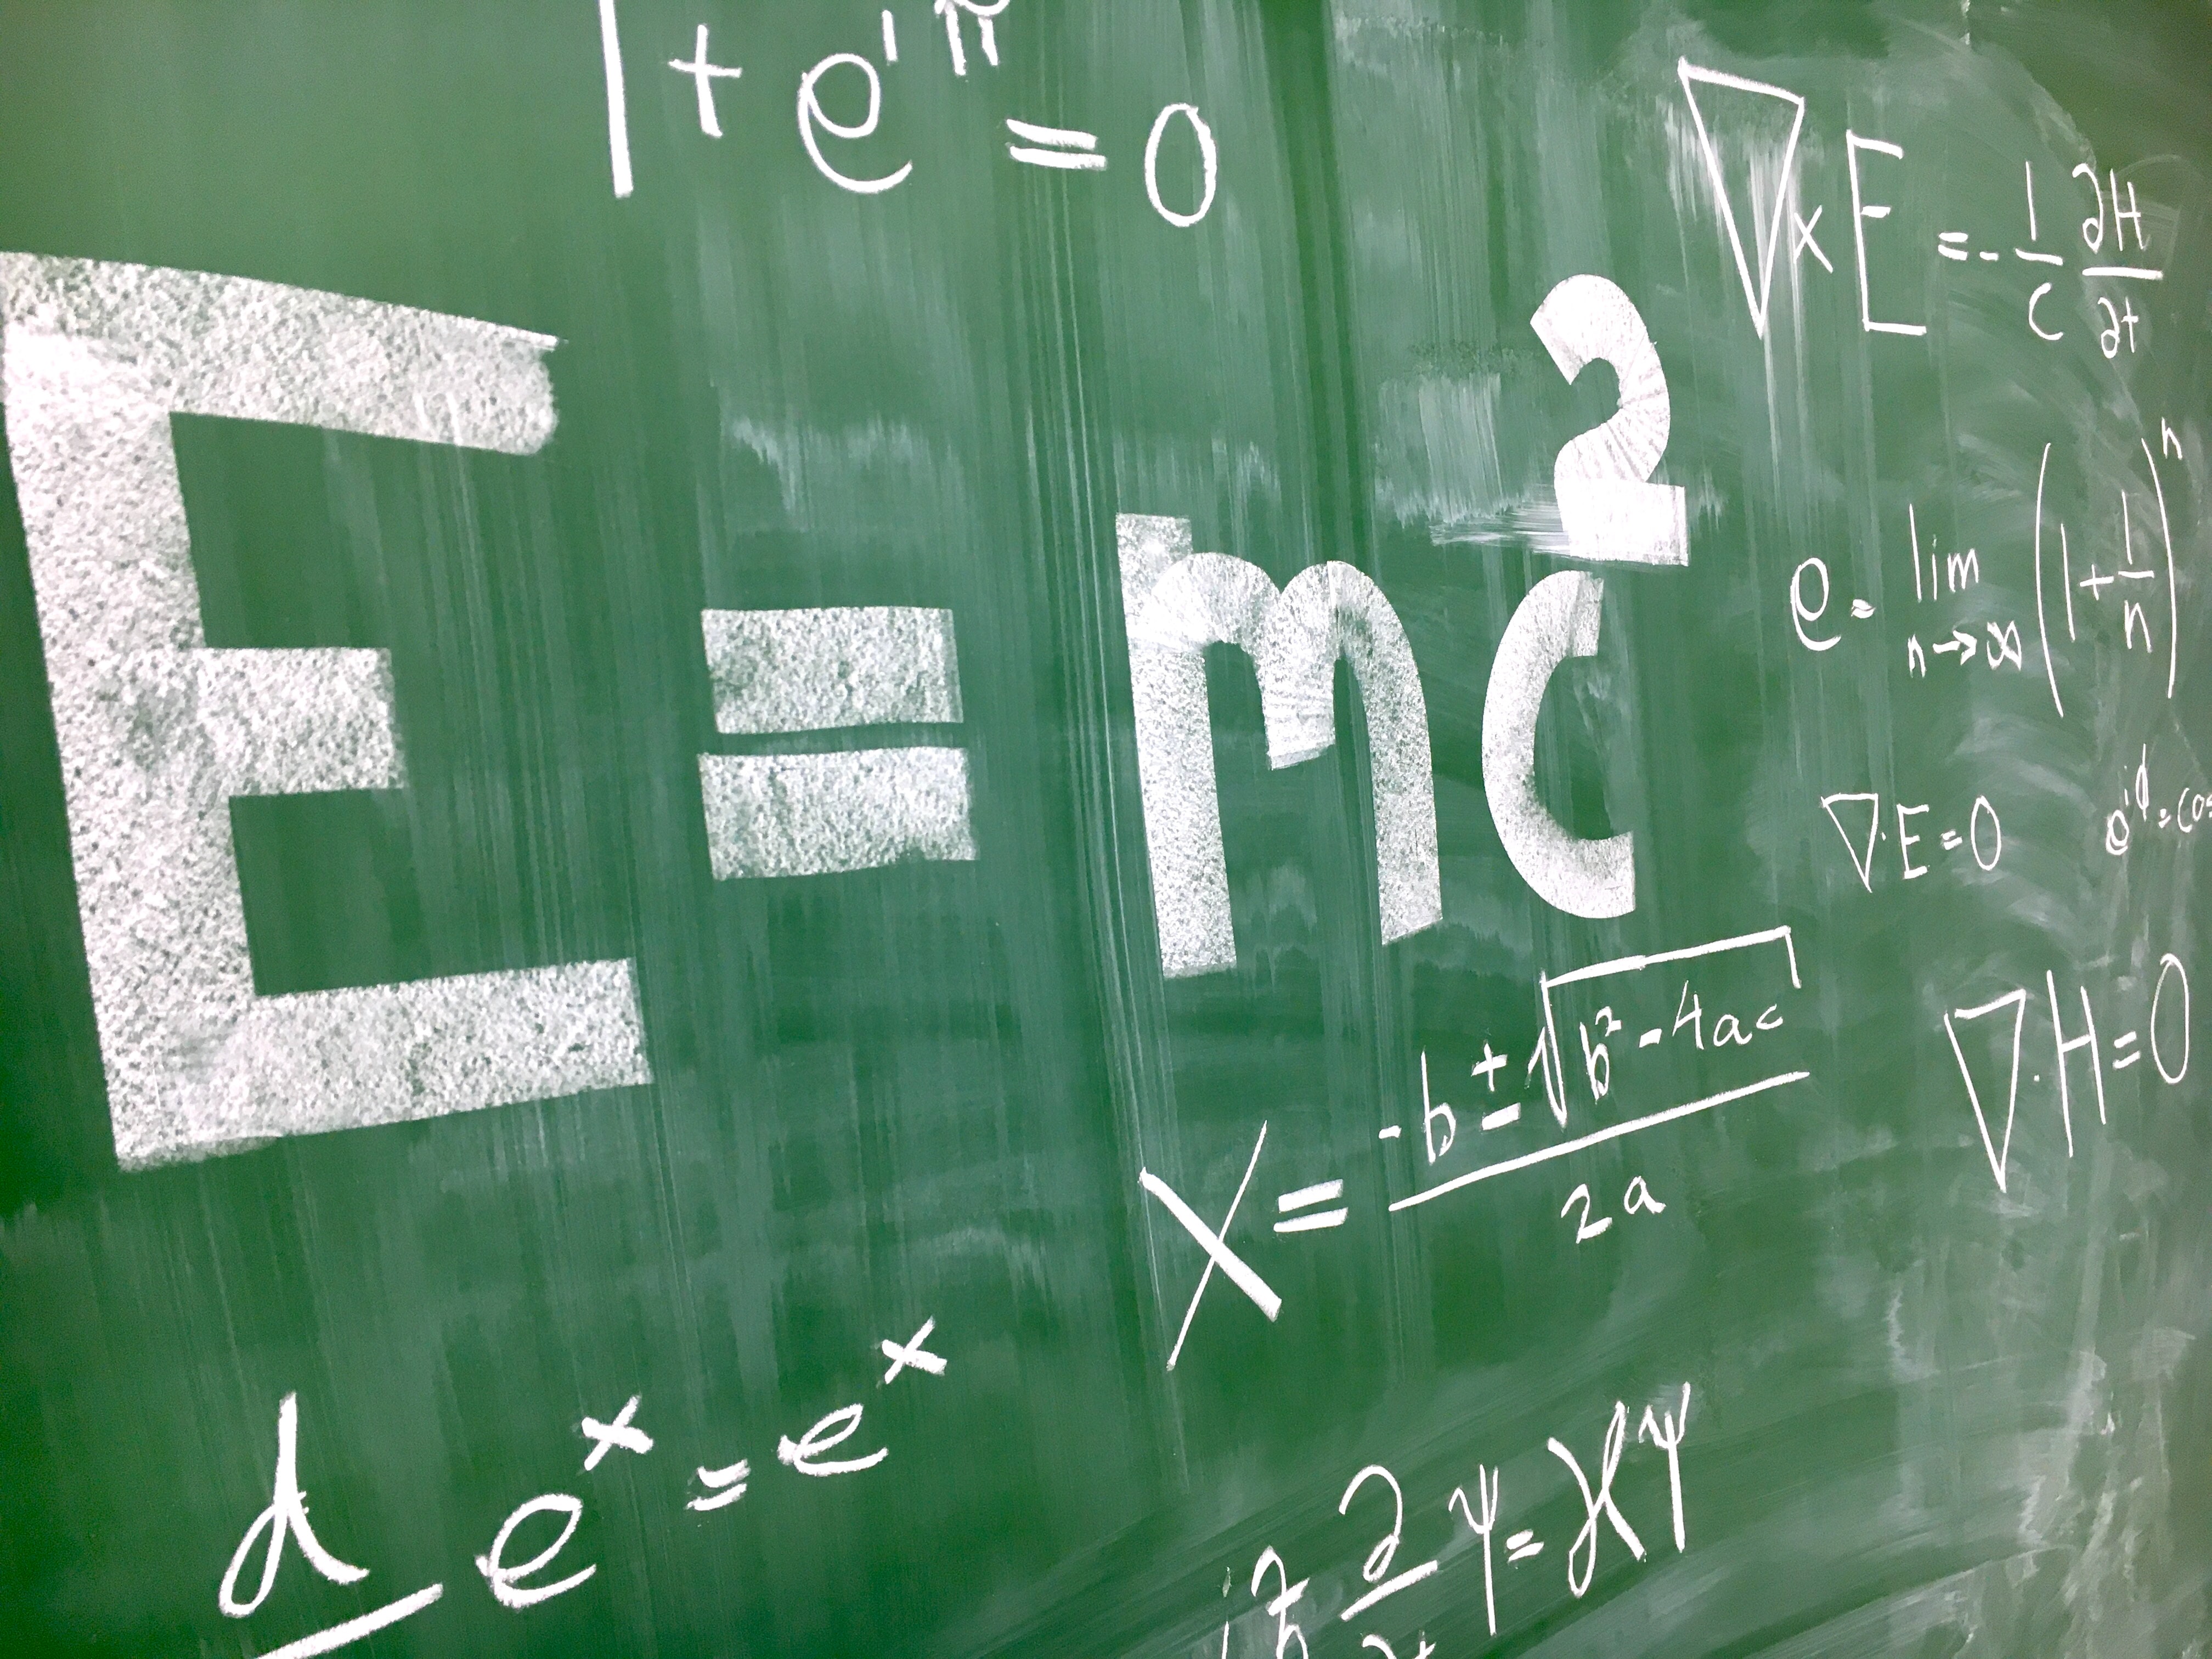 1 + e^{iπ} = 0
∇×E = - 1/c ∂H/∂t
E = mc²
e = lim n→∞ (1 + 1/n)^n
∇·E = 0
e^{iϕ} = cos
∇·H = 0
x = -b ± √b² - 4ac / 2a
d e^x = e^x
iħ ∂/∂t ψ = Hψ